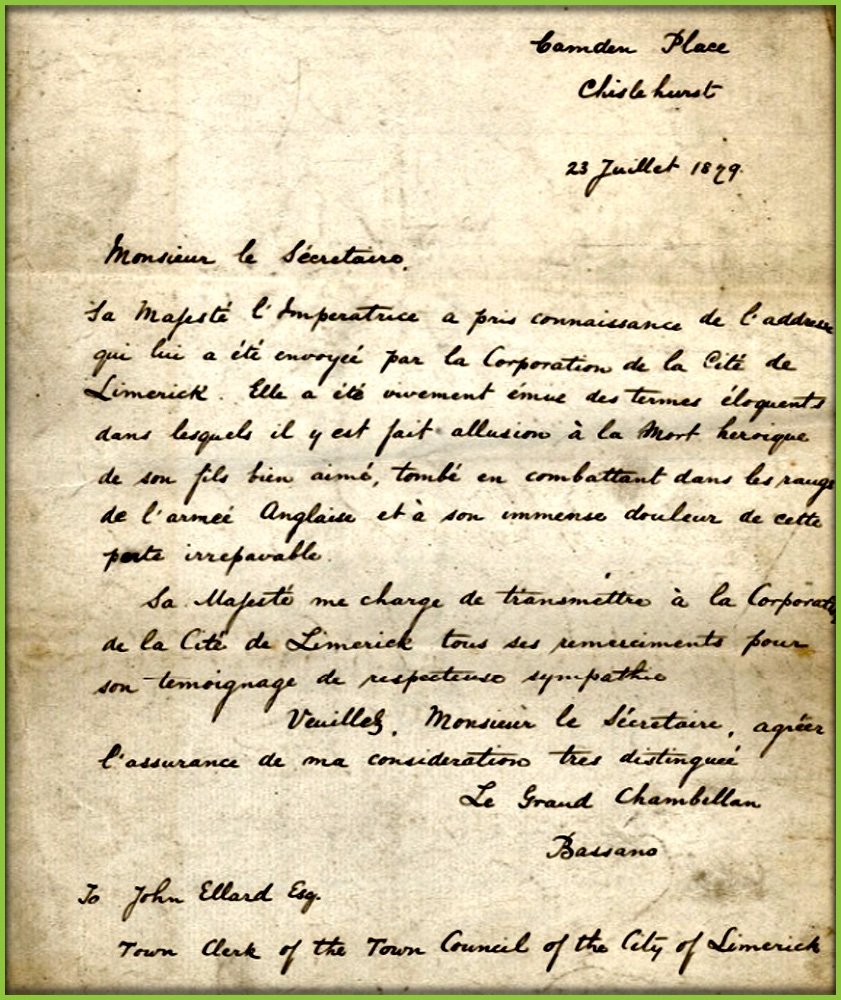 Camden Place
Chislehurst
23 Juillet 1879.
Monsieur le Sécretaire.
Sa Majesté l'Imperatrice a pris connaissance de l'addresse
qui lui a été envoyeé par la Corporation de la Cité de
Limerick. Elle a été vivement émue des termes éloquents
dans lesquels il y est fait allusion à la Mort heroique
de son fils bien aimé, tombé en combattant dans les rangs
de l'armeé Anglaise et à son immense douleur de cette
perte irreparable.
Sa Majesté me charge de transméttre à la Corporation
de la Cité de Limerick tous ses remerciments pour
son temoignage de respecteuse sympathie
Veuillez, Monsieur le Sécretaire, agrëer
l'assurance de ma consideration tres distingueé
Le Grand Chambellan
Bassano
To John Ellard Esq.
Town Clerk of the Town Council of the City of Limerick